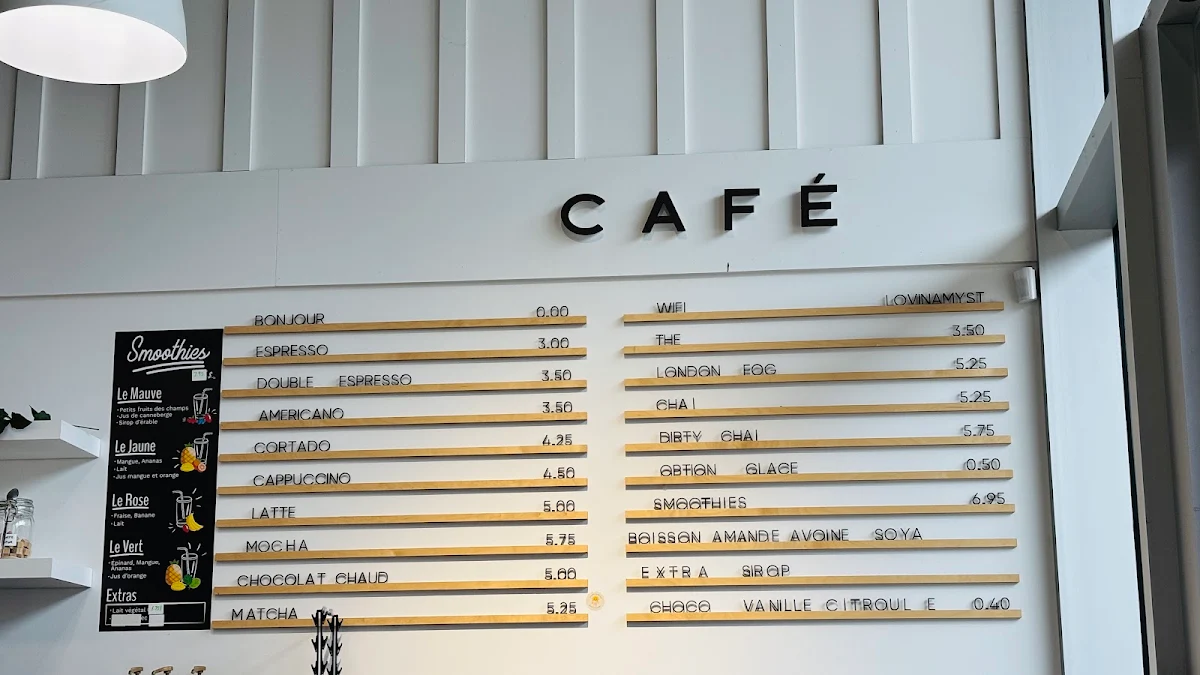 CAFÉ
Smoothies
Le Mauve
·Petits fruits des champs
·Jus de canneberge
·Sirop d'érable
Le Jaune
·Mangue, Ananas
·Lait
·Jus mangue et orange
Le Rose
·Fraise, Banane
·Lait
Le Vert
·Épinard, Mangue,
Ananas
·Jus d'orange
Extras
·Lait végétal
BONJOUR 0.00
ESPRESSO 3.00
DOUBLE ESPRESSO 3.50
AMERICANO 3.50
CORTADO 4.25
CAPPUCCINO 4.50
LATTE 5.00
MOCHA 5.75
CHOCOLAT CHAUD 5.00
MATCHA 5.25
WIFI LOVINAMYST
THE 3.50
LONDON FOG 5.25
CHAI 5.25
DIRTY CHAI 5.75
OPTION GLACE 0.50
SMOOTHIES 6.95
BOISSON AMANDE AVOINE SOYA
EXTRA SIROP
CHOCO VANILLE CITROUL E 0.40